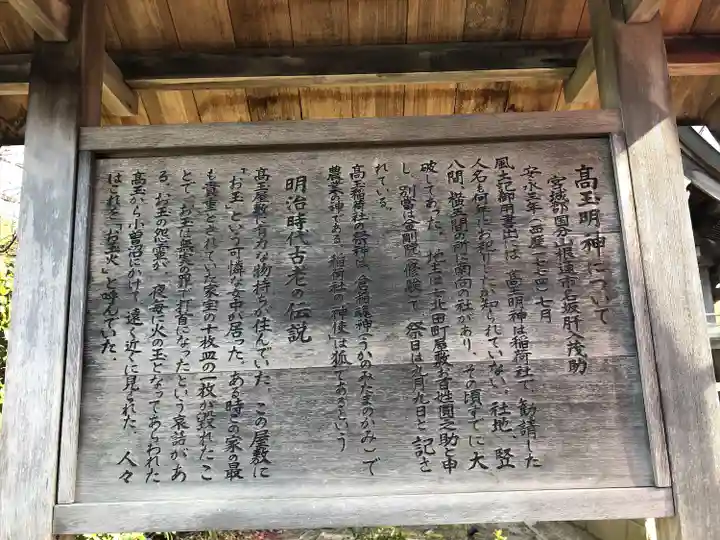 高玉明神について
宮城郡国分山根通市名坂肝入茂助
安永三年(西歴一七七四)七月
風土記御用書出には、高玉明神は稲荷社で、勧請した
人名も何年にお祀りしたか知られていない。社地、竪
八間、横五間の所に南向の社があり、その頃すでに大
破してあった。地主は、北田町屋敷百姓圓之助と申
し、別当は金剛院(修験)で、祭日は九月九日と記さ
れている。
高玉稲荷社の祭神は、倉稲魂神(うかのみたまのかみ)で
農業の神である。「稲荷社の神使」は狐であるという
明治時代古老の伝説
高玉屋敷に有力な物持ちが住んでいた、この屋敷に
「お玉」という可憐な女中が居った、ある時この家の最
も貴重とされていた家宝の十枚皿の一枚が毀れたこ
とで、お玉は無実の罪で打首になったという哀話があ
る。お玉の怨霊が、夜毎に火の玉となってあらわれた
高玉から小曽沼にかけて、遠く近くに見られた、人々
はこれを「お玉火」と呼んでいた。